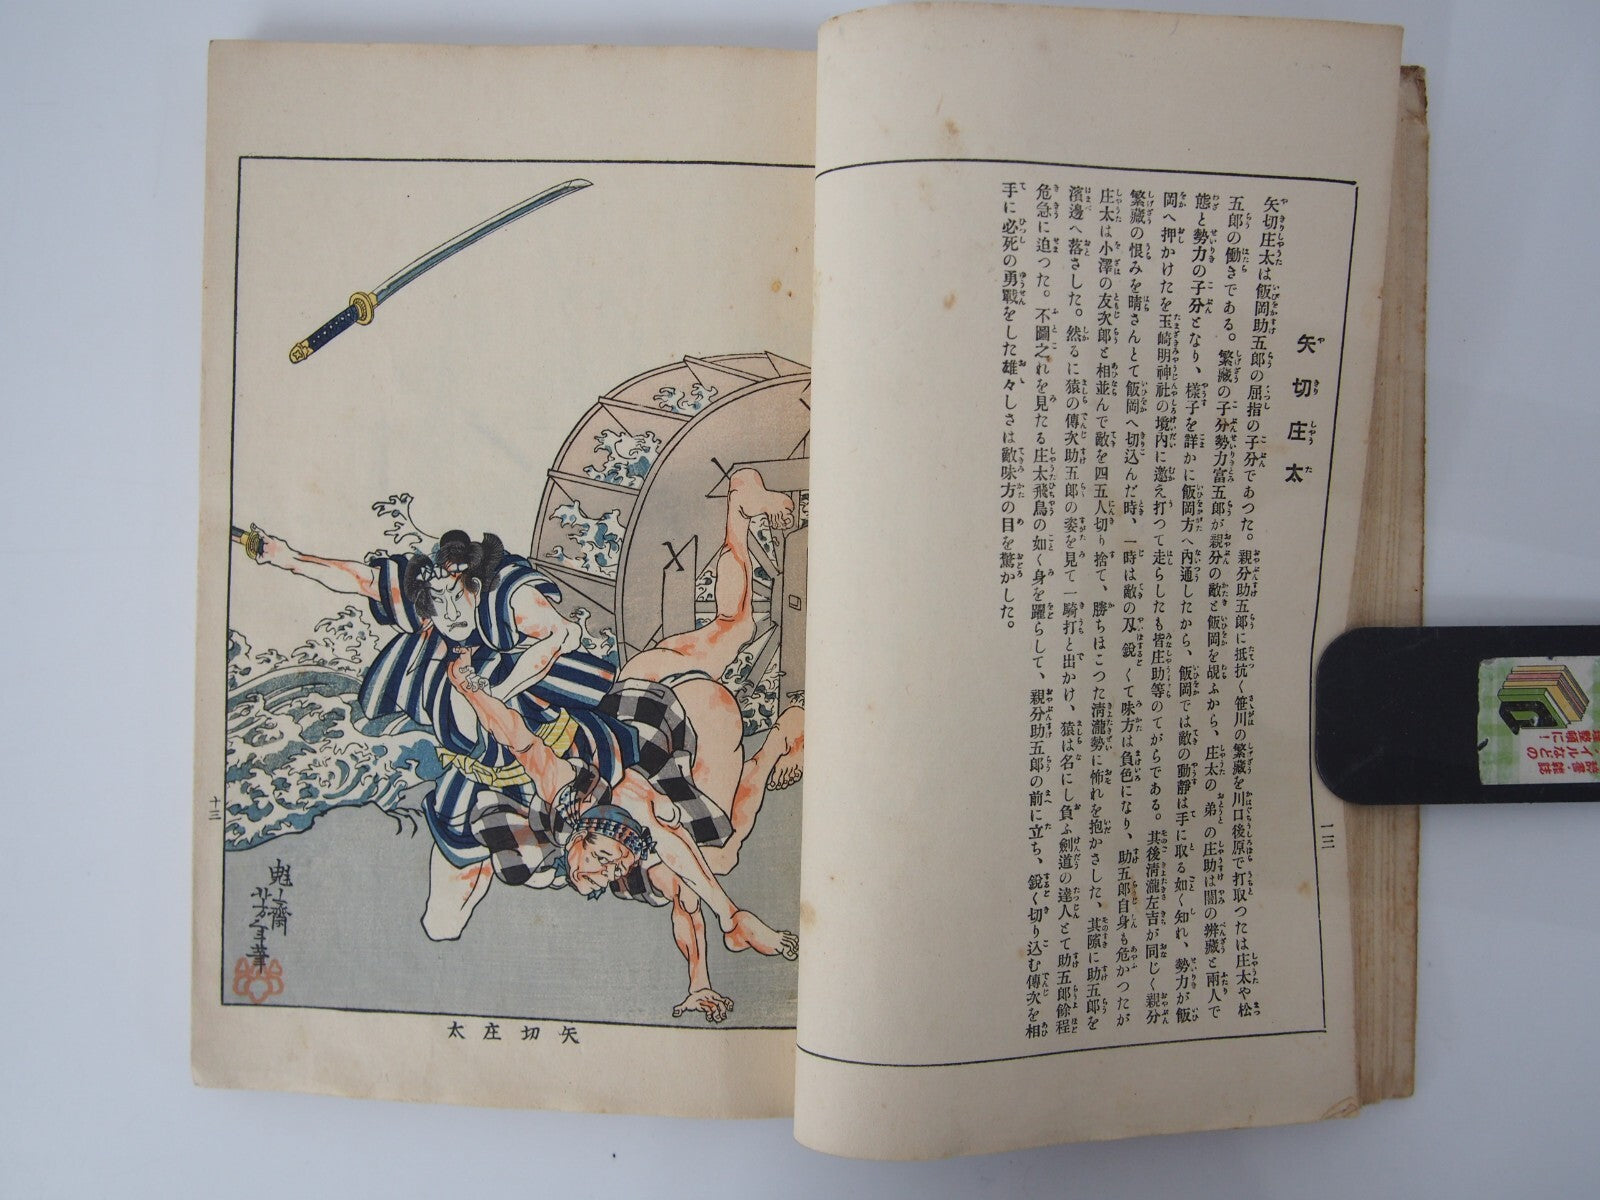 矢切庄太
矢切庄太は飯岡助五郎の屈指の子分であつた。親分助五郎に抵抗く笹川の繁藏を川口後原で打取つたは庄太や松
五郎の働きである。繁藏の子分勢力富五郎が親分の敵と飯岡を覘ふから、庄太の弟の庄助は闇の辨藏と兩人で
態と勢力の子分となり、樣子を詳かに飯岡方へ內通したから、飯岡では敵の動靜は手に取る如く知れ、勢力が飯
岡へ押かけたを玉崎明神社の境內に邀え打つて走らしたも皆庄助等のてがらである。其後淸瀧左吉が同じく親分
繁藏の恨みを晴さんとて飯岡へ切込んだ時、一時は敵の刄銳くて味方は負色になり、助五郎自身も危かつたが
庄太は小澤の友次郎と相並んで敵を四五人切り捨て、勝ちほこつた淸瀧勢に怖れを抱かさした、其隙に助五郎を
濱邊へ落さした。然るに猿の傳次助五郎の姿を見て一騎打と出かけ、猿は名にし負ふ劍道の達人とて助五郎餘程
危急に迫つた。不圖之れを見たる庄太飛鳥の如く身を躍らして、親分助五郎の前に立ち、銳く切り込む傳次を相
手に必死の勇戰をした雄々しさは敵味方の目を驚かした。
一三
十三
魁齋芳年筆
矢切庄太